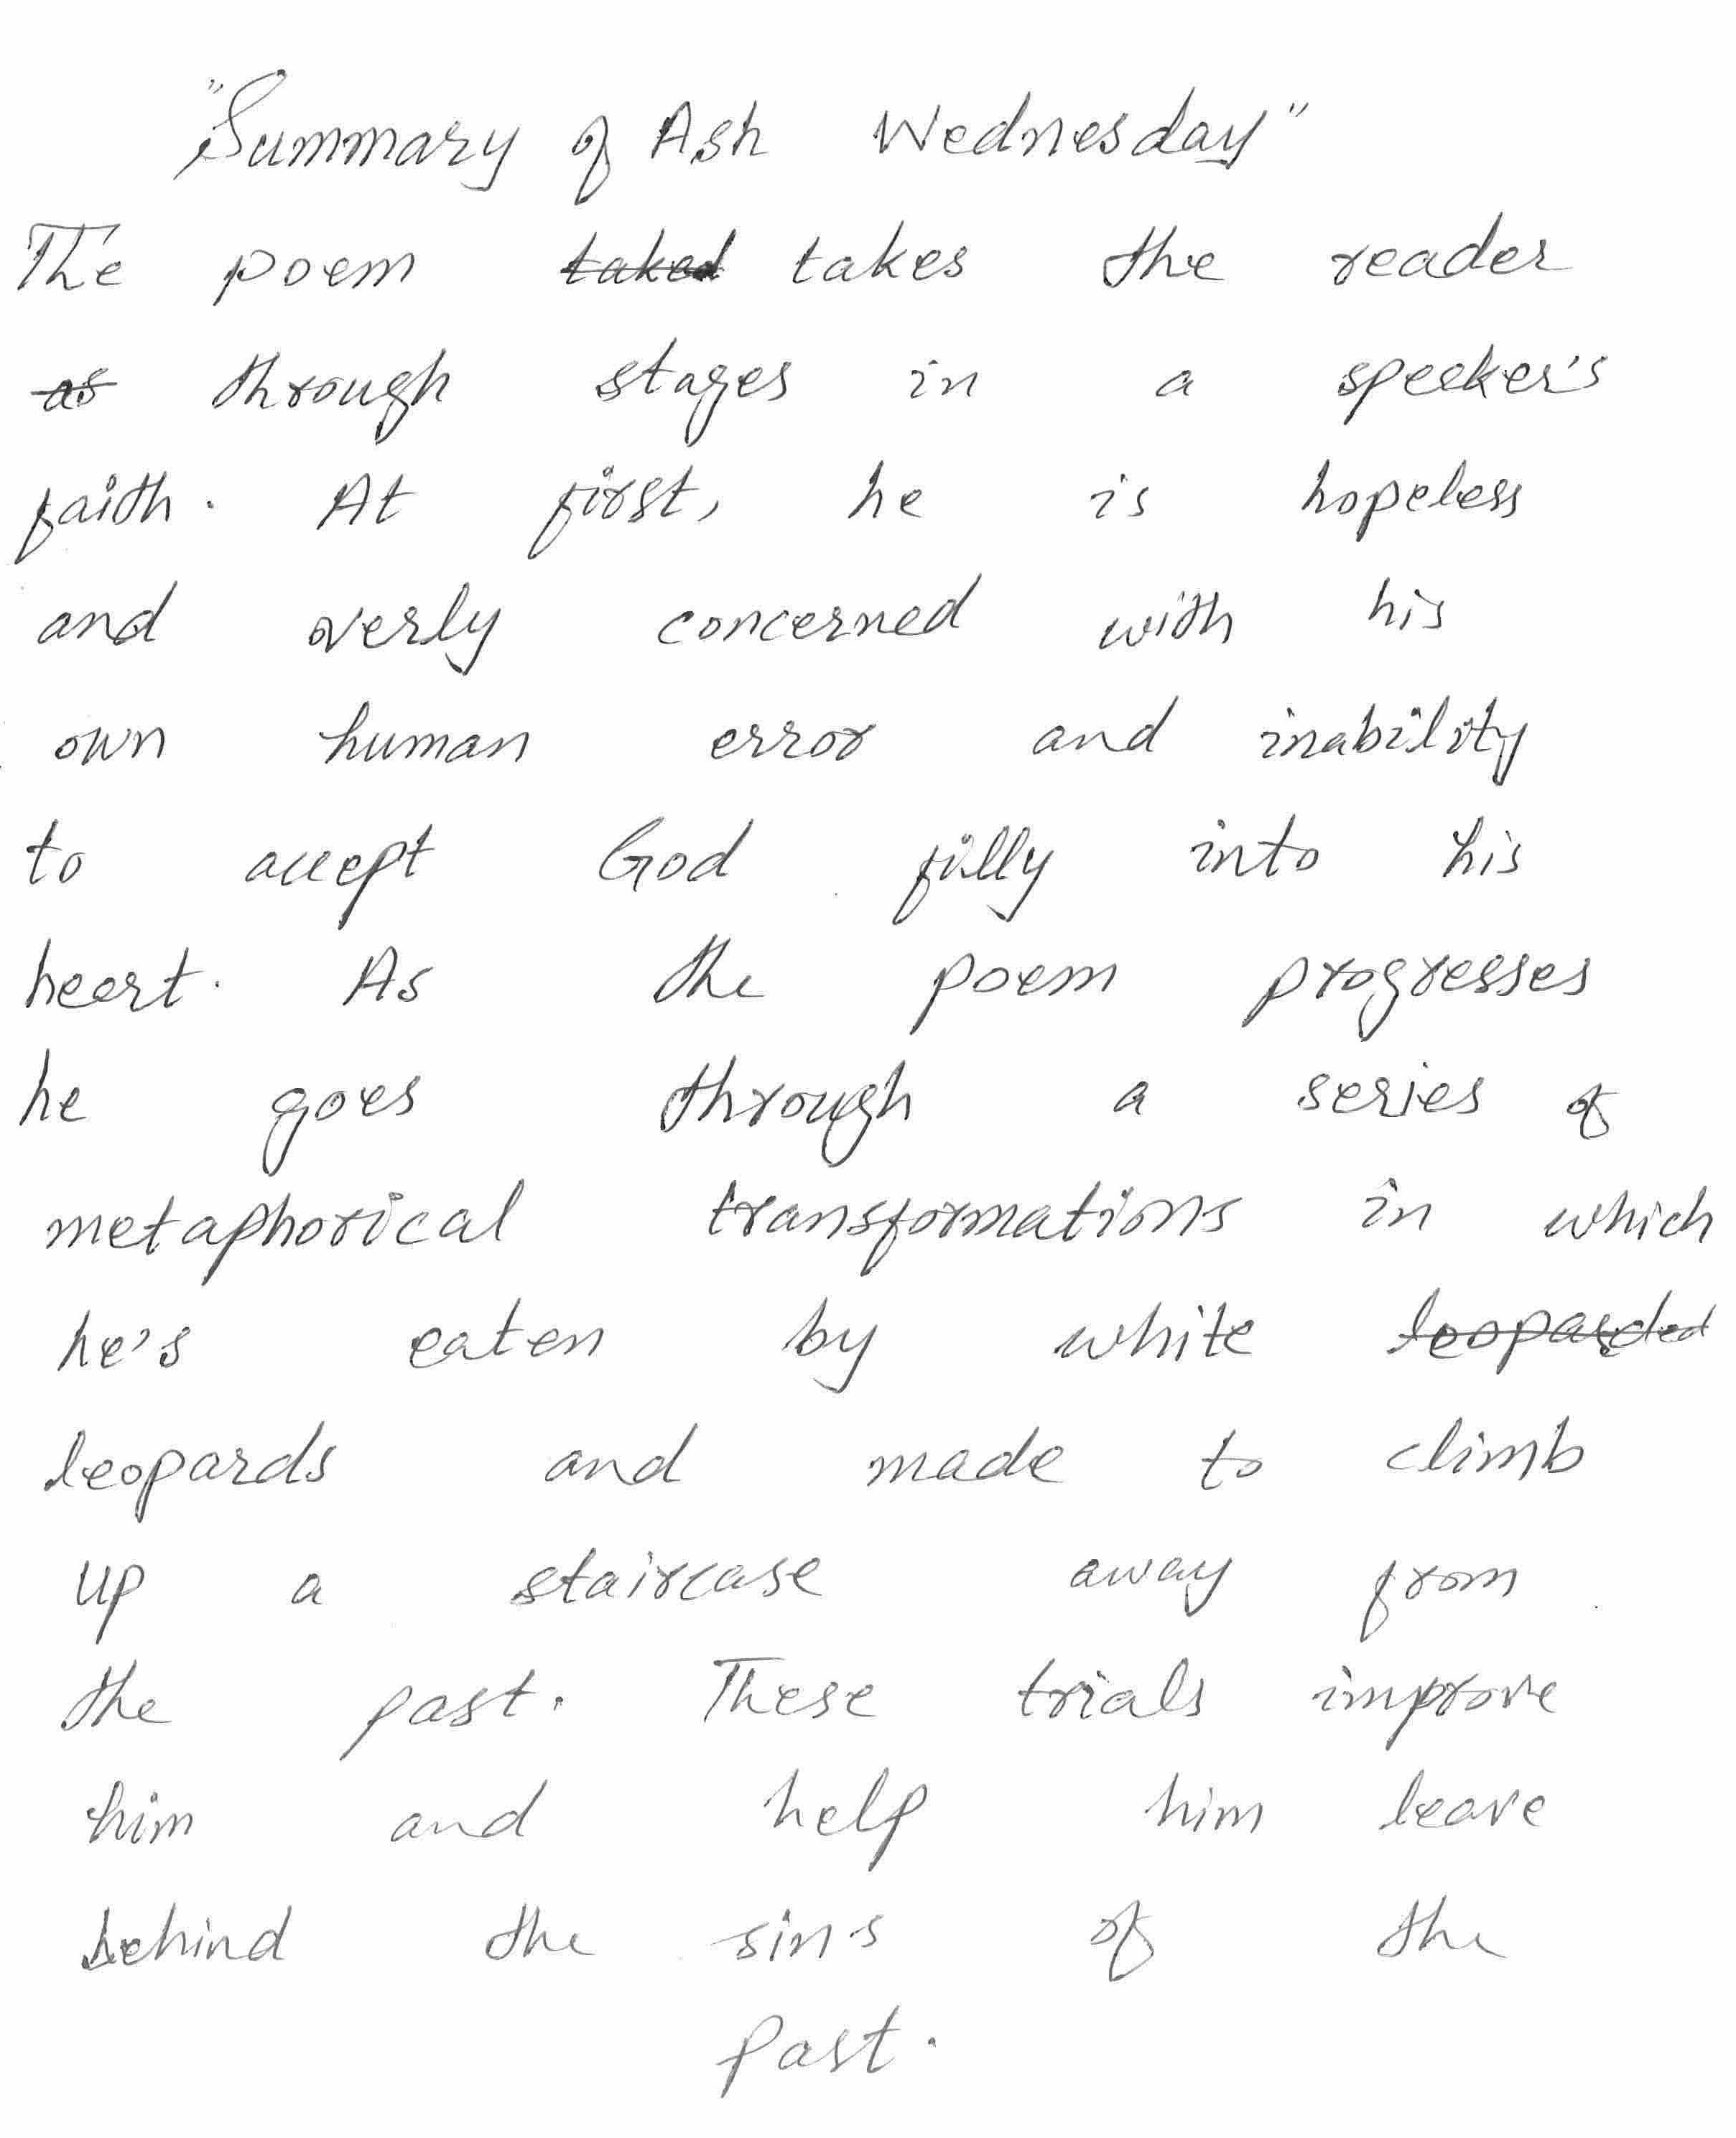 "Summary of Ash Wednesday"
The poem taked takes the reader
as through stages in a speeker's
faith. At first, he is hopeless
and overly concerned with his
own human error and inability
to accept God filly into his
heart. As the poem progresses
he goes through a series of
metaphorical transformations in which
he's eaten by white leoparded
leopards and made to climb
up a staircase away from
the past. These trials improve
him and help him leave
behind the sins of the
past.